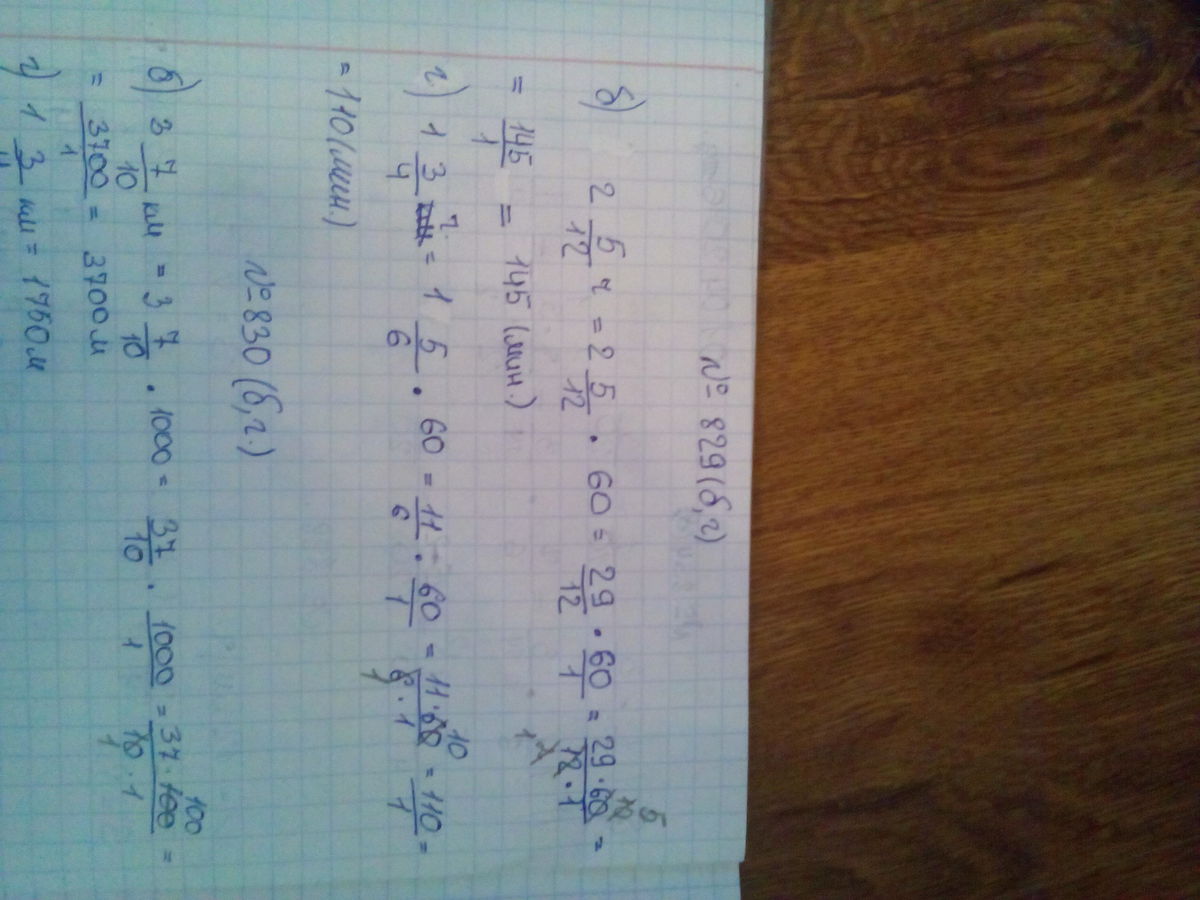 № 829(б,г)
б) 2 5/12 ч = 2 5/12 · 60 = 29/12 · 60/1 = 29·60/12·1 =
= 145/1 = 145 (мин.)
г) 1 3/4 ч = 1 5/6 · 60 = 11/6 · 60/1 = 11·60/6·1 = 110/1 =
= 110 (мин.)
№ 830 (б,г.)
б) 3 7/10 км = 3 7/10 · 1000 = 37/10 · 1000/1 = 37·100/10·1 =
= 3700/1 = 3700 м
г) 1 3/4 км = 1750 м